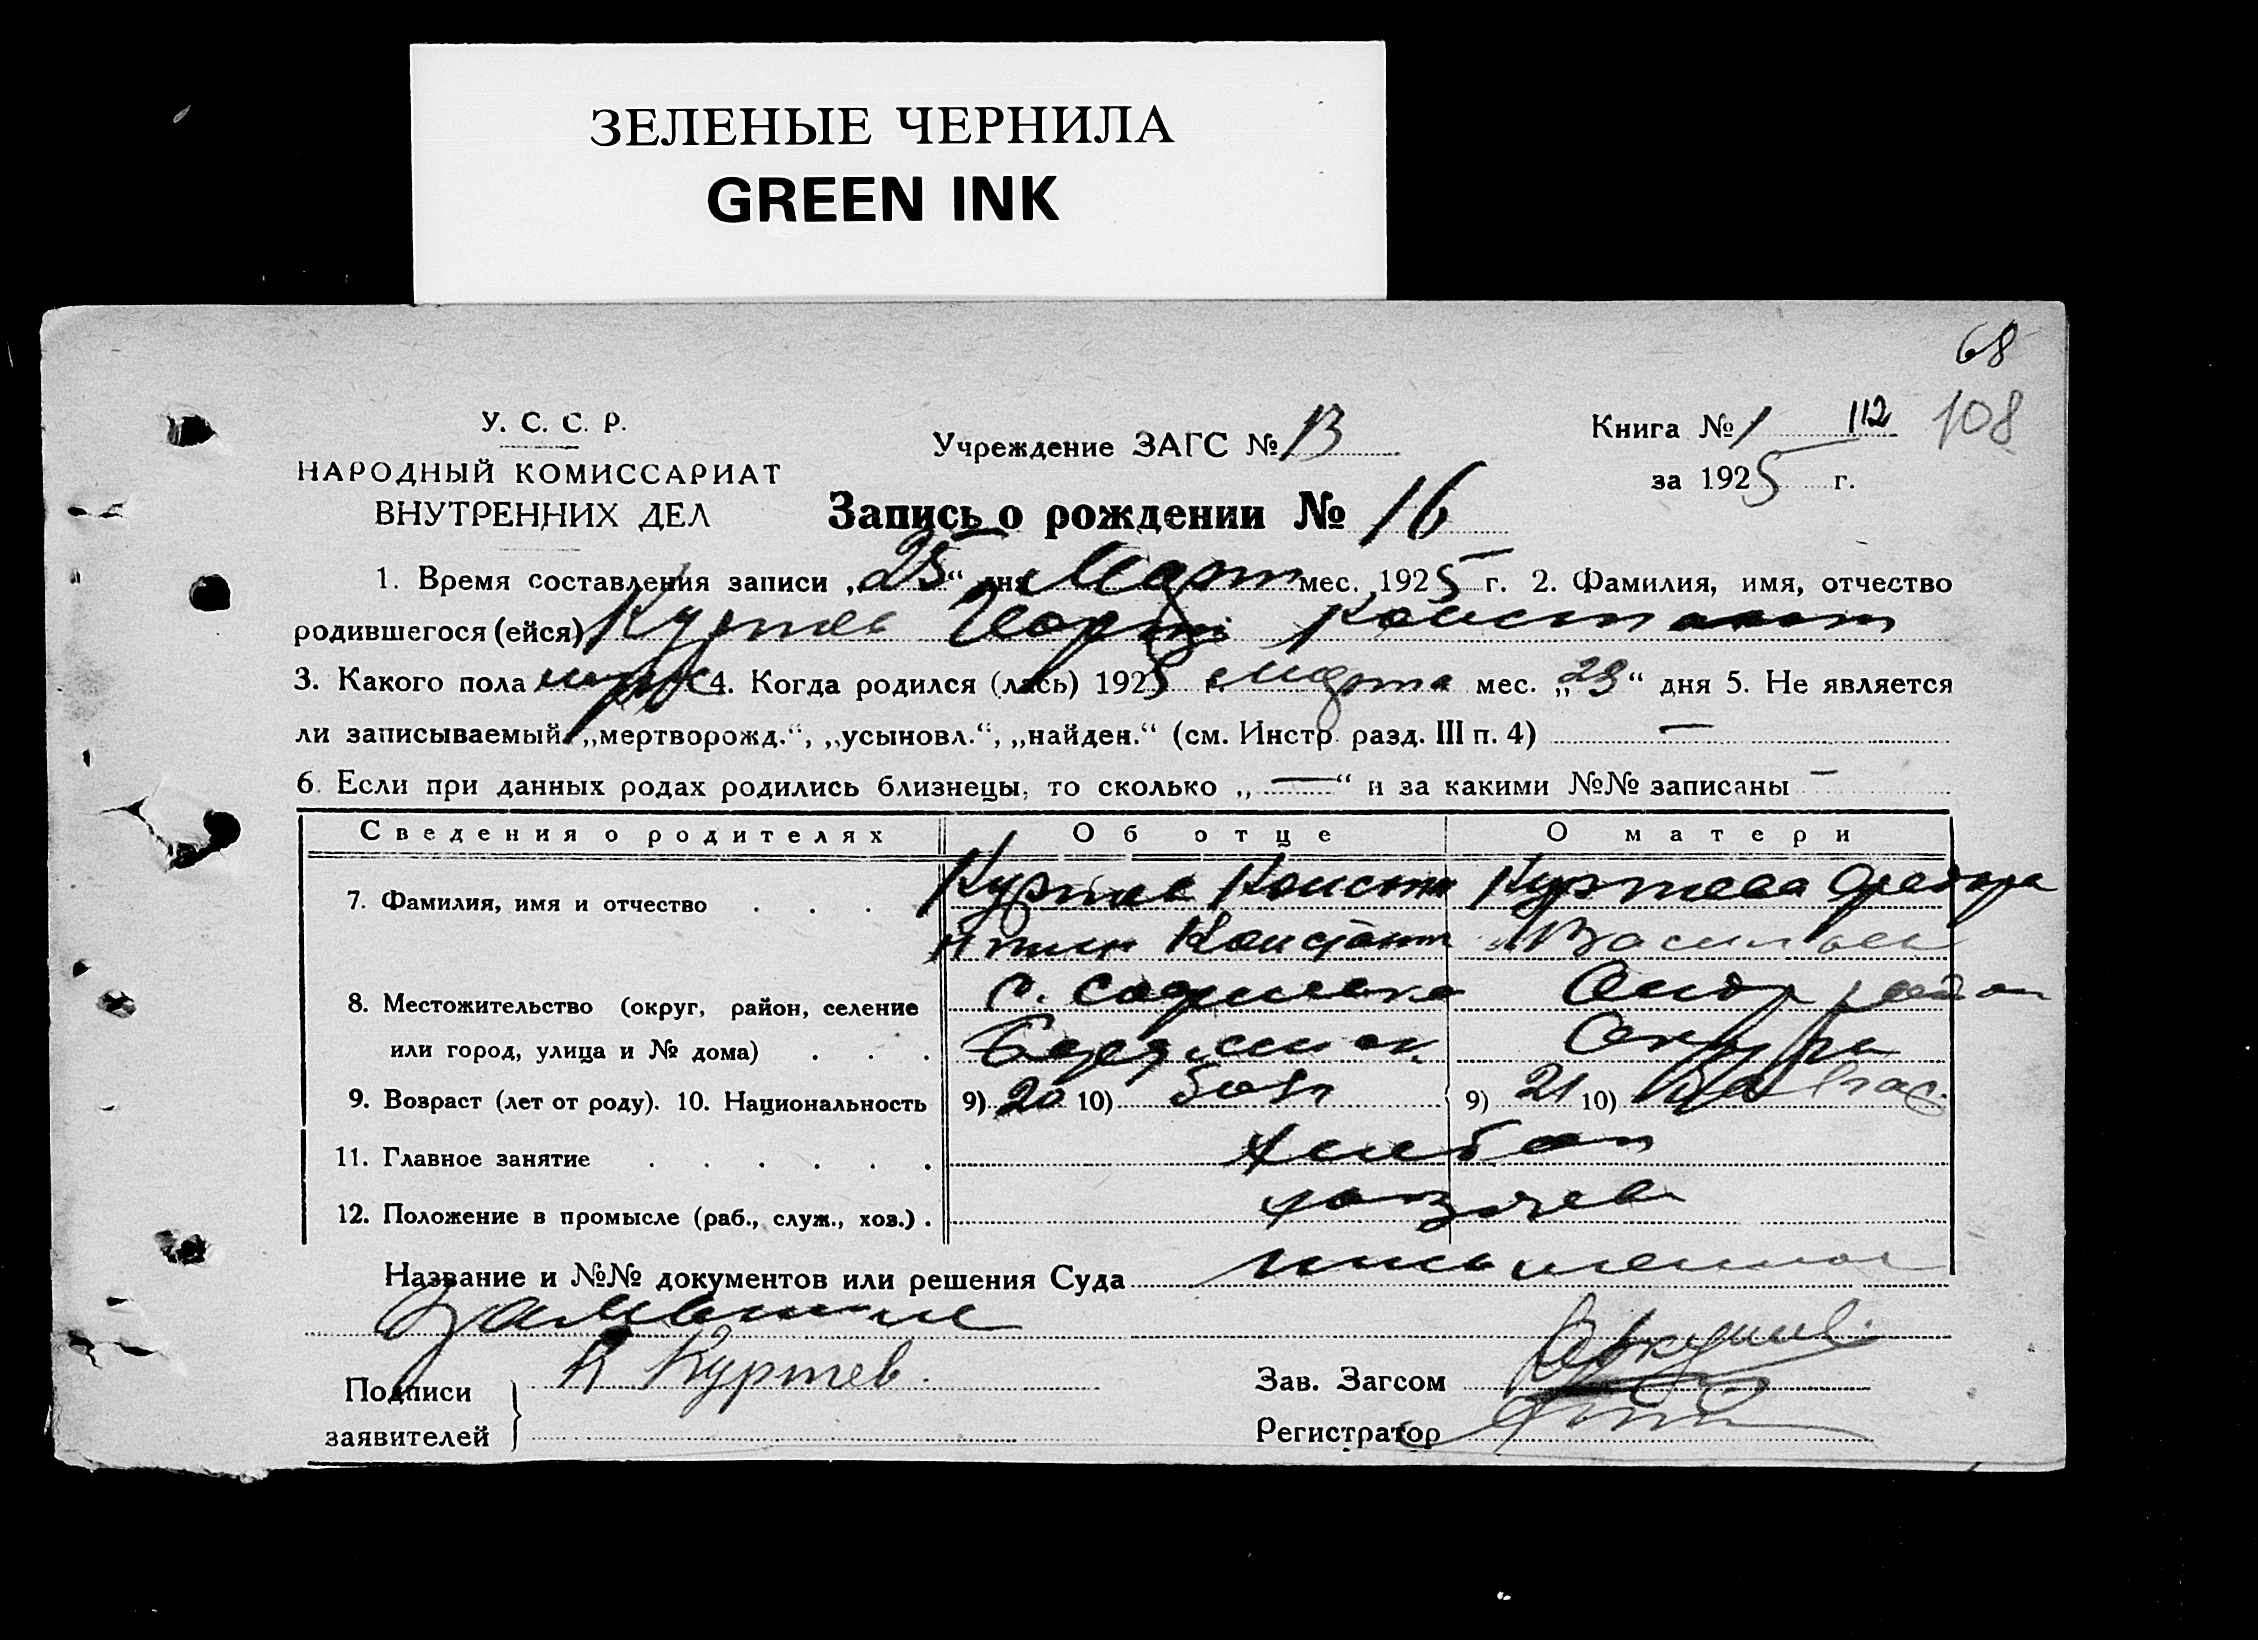 ЗЕЛЕНЫЕ ЧЕРНИЛА
GREEN INK
68
У. С. С. Р.
НАРОДНЫЙ КОМИССАРИАТ
ВНУТРЕННИХ ДЕЛ
Учреждение ЗАГС № 13
Книга № 1 112 108
за 1925 г.
Запись о рождении № 16
1. Время составления записи „25“ дня Март мес. 1925 г. 2. Фамилия, имя, отчество
родившегося (ейся) Куртев Георгі Констант
3. Какого пола муж 4. Когда родился (лась) 1925 г. Марта мес. „23“ дня 5. Не является
ли записываемый „мертворожд.“, „усыновл.“, „найден.“ (см. Инстр. разд. III п. 4) —
6. Если при данных родах родились близнецы, то сколько „—“ и за какими №№ записаны —
Сведения о родителях Об отце О матери
7. Фамилия, имя и отчество . . . Куртев Конста Куртева
нтин Констант Васильев
8. Местожительство (округ, район, селение с.
или город, улица и № дома) . . . Округа
9. Возраст (лет от роду). 10. Национальность 9) 20 10) Болг 9) 21 10)
11. Главное занятие . . . . . . Хлебоп
12. Положение в промысле (раб., служ., хоз.) . хозяев
Название и №№ документов или решения Суда письменное
Заявление
Подписи
заявителей
К Куртев.
Зав. Загсом
Регистратор